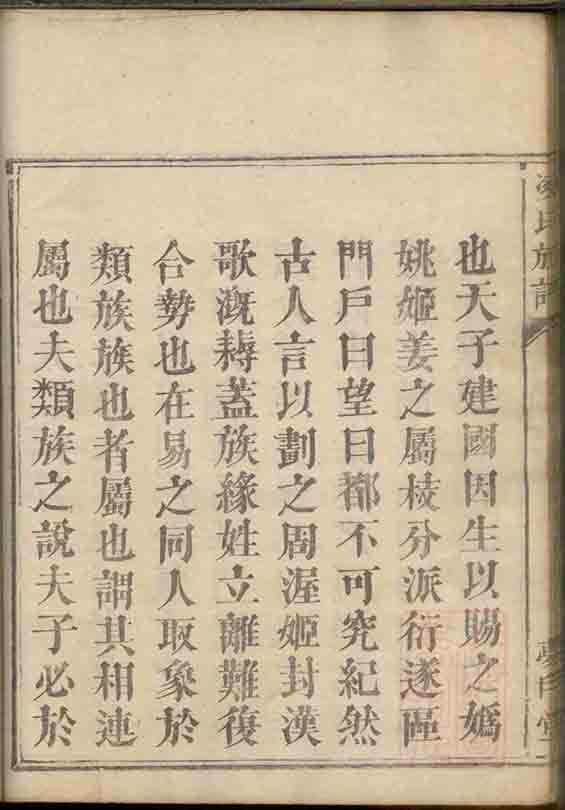 氏族譜
也天子建國因生以賜之媯
姚姬姜之屬枝分派衍遂區
門戶曰望曰都不可究紀然
古人言以劃之周渥姬封漢
歌溉耨蓋族緣姓立離難復
合勢也在易之同人取象於
類族族也者屬也謂其相連
屬也夫類族之說夫子必於